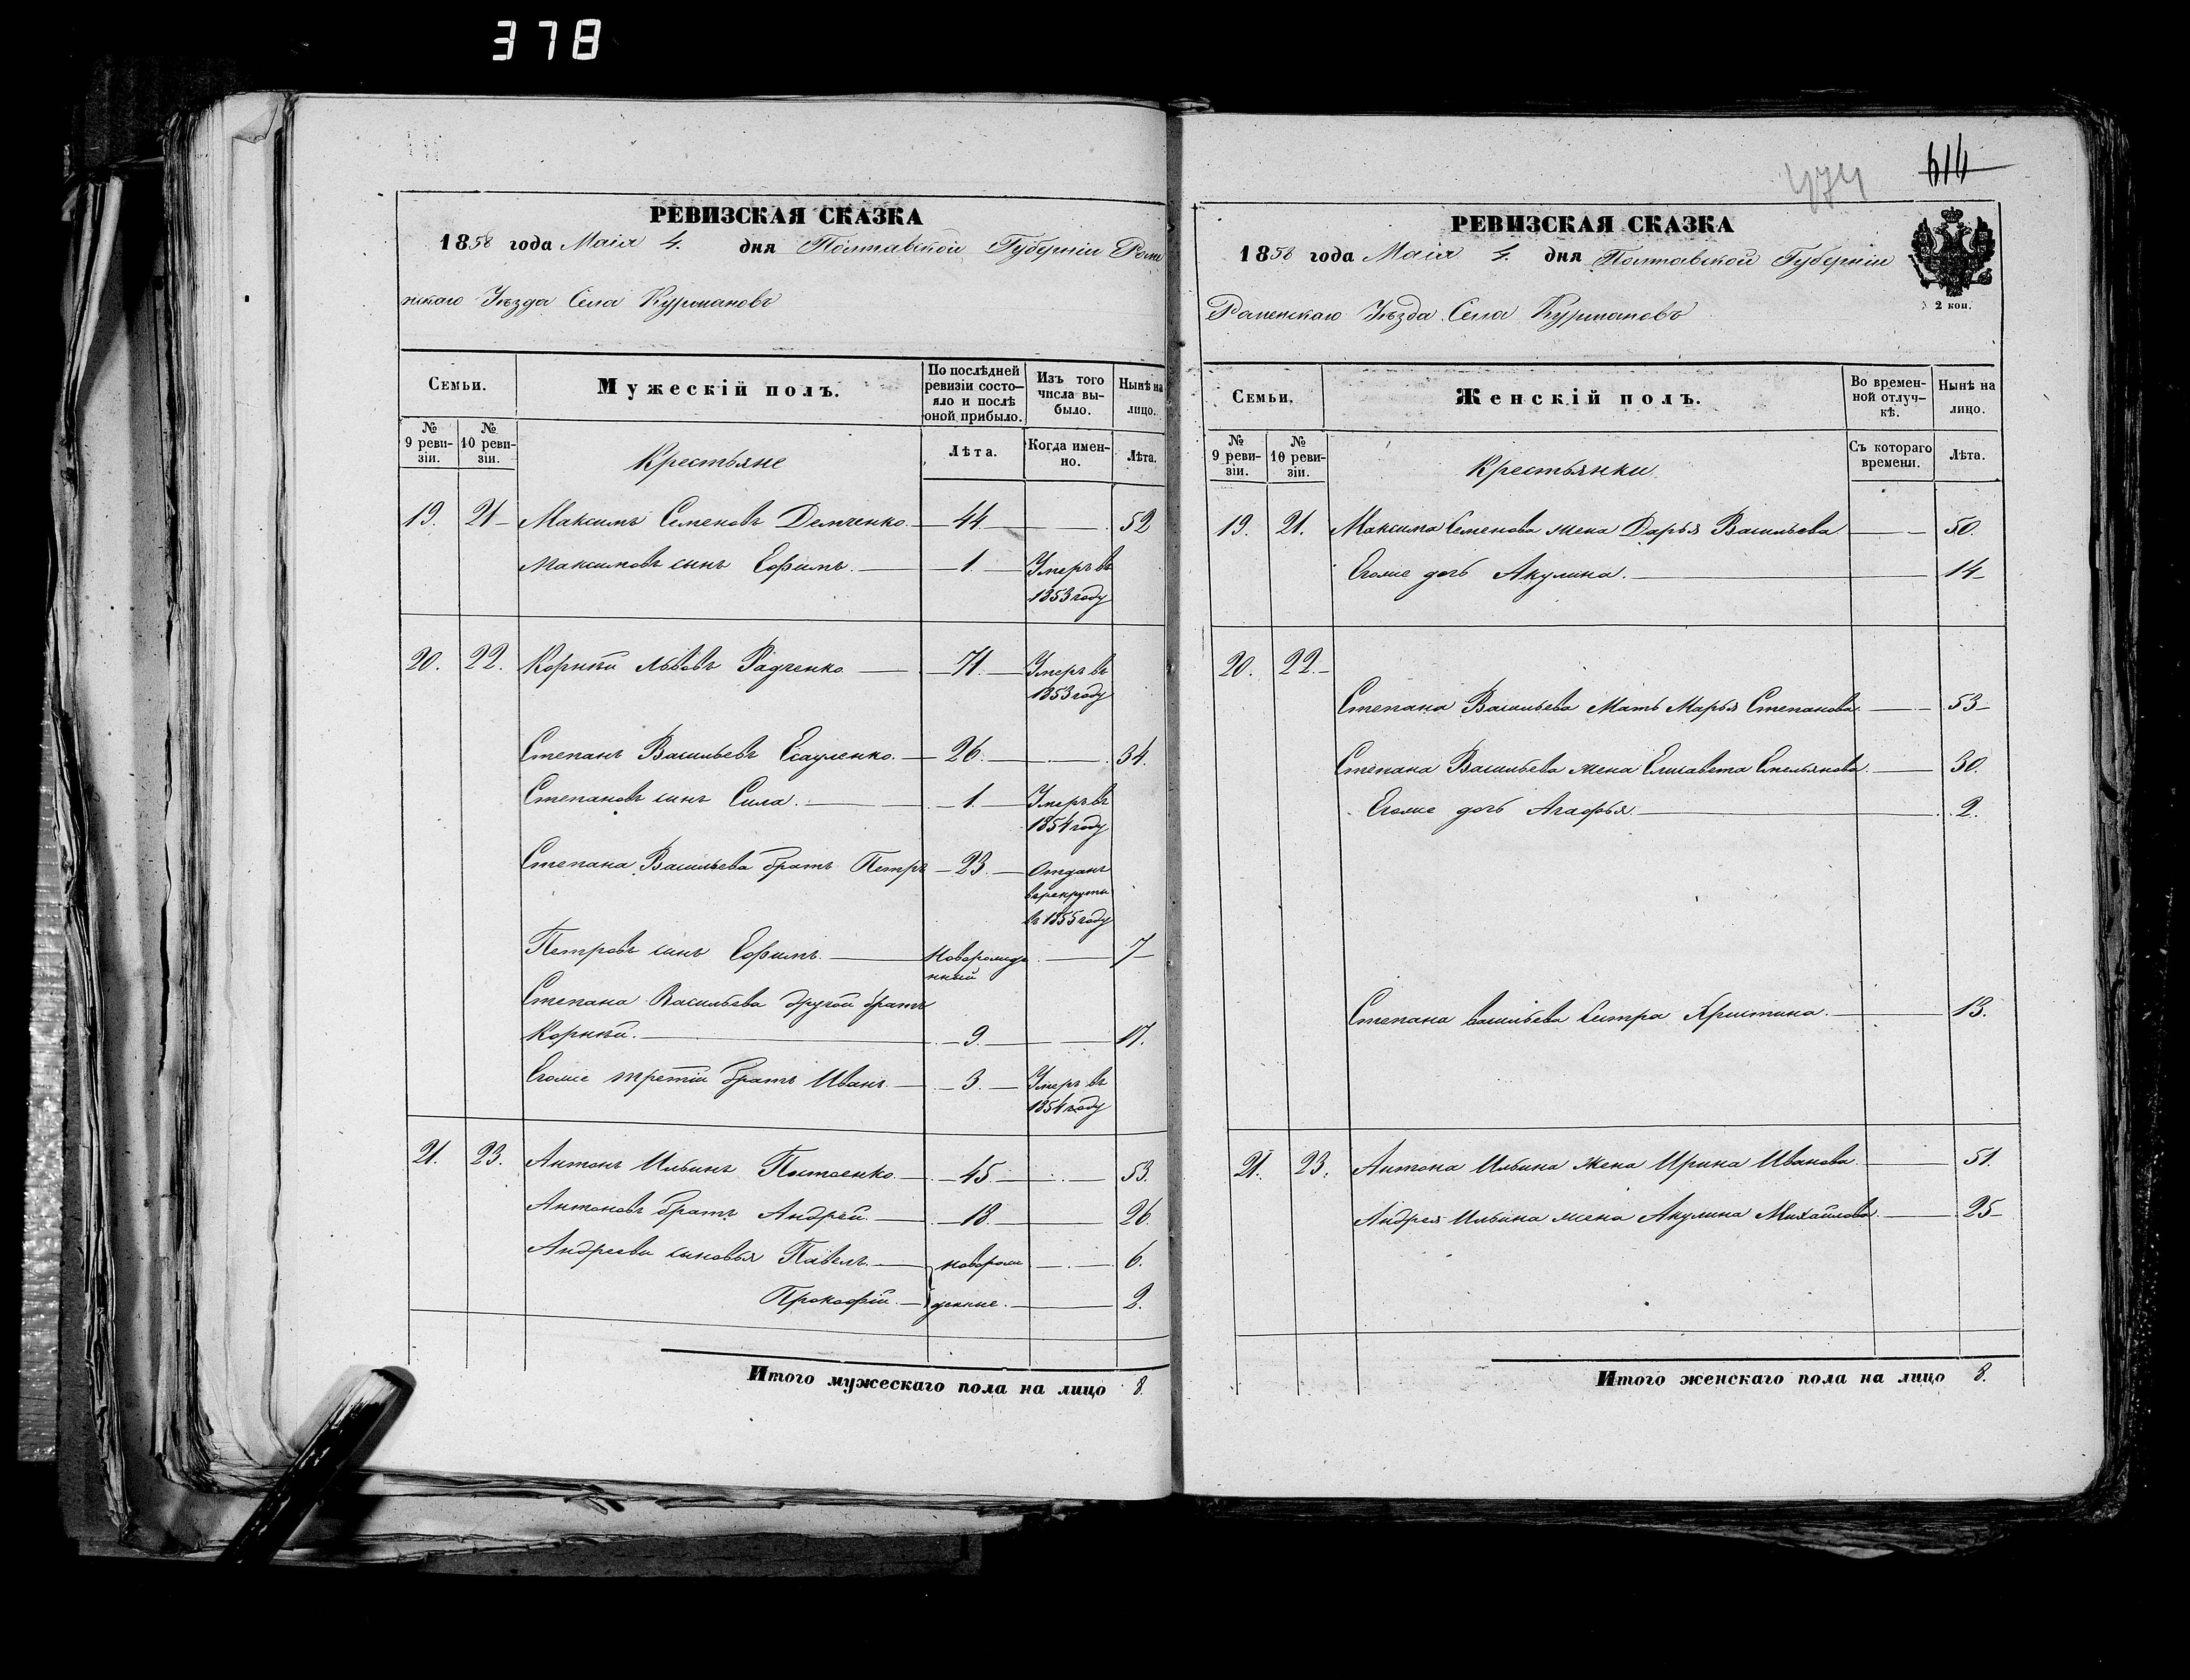 378
РЕВИЗСКАЯ СКАЗКА
1858 года Маія 4. дня Полтавской Губерніи Роме
нскаго Уѣзда Села Курмановъ
Семьи.
Мужескій полъ.
По послѣдней
ревизіи состо-
яло и послѣ
оной прибыло.
Изъ того
числа вы-
было.
Нынѣ на
лицо.
№
9 реви-
зіи.
№
10 реви-
зіи.
Крестьяне
Лѣта.
Когда имен-
но.
Лѣта.
19. 21 Максимъ Семеновъ Демченко. 44 52
Максимовъ сынъ Ефимъ. 1. Умеръ въ
1853 году
20. 22. Корнѣй Львовъ Радченко 71. Умеръ въ
1853 году
Степанъ Васильевъ Есауленко. 26. 34.
Степановъ сынъ Сила. 1. Умеръ въ
1854 году
Степана Васильева братъ Петръ 23. Отданъ
въ рекруты
въ 1855 году
Петровъ сынъ Ефимъ. Новорожде
нный 7
Степана Васильева другой братъ
Корнѣй. 9. 17.
Егоже третій братъ Иванъ. 3. Умеръ въ
1854 году
21. 23. Антонъ Ильинъ 45. 53.
Антоновъ братъ Андрей 18. 26.
Андреевы сыновья Павелъ. новорож 6.
Прокофій. денные. 2.
Итого мужескаго пола на лицо 8.
474 614
РЕВИЗСКАЯ СКАЗКА
1858 года Маія 4. дня Полтавской Губерніи
Роменскаго Уѣзда Села Курмановъ
2 коп.
Семьи.
Женскій полъ.
Во времен-
ной отлуч-
кѣ.
Нынѣ на
лицо.
№
9 реви-
зіи.
№
10 реви-
зіи.
Крестьянки
Съ котораго
времени.
Лѣта.
19. 21. Максима Семенова жена Дарья Васильева 50.
Егоже дочь Акулина. 14
20. 22.
Степана Васильева Мать Марья Степанова. 53
Степана Васильева жена Елисавета Емельянова. 30.
Егоже дочь Агафья. 2.
Степана Васильева Сестра Христина. 13.
21. 23. Антона Ильина Жена Ирина Иванова. 51.
Андрея Ильина жена Акулина Михайлова. 25
Итого женскаго пола на лицо 8.